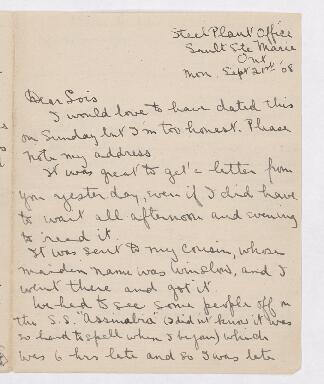 Steel Plant Office
Sault Ste Marie
Ont
Mon. Sept 21st '08
Dear Lois
I would love to have dated this
on Sunday but I'm too honest. Please
note my address
It was great to get a letter from
you yesterday, even if I did have
to wait all afternoon and evening
to read it.
It was sent to my cousin, whose
maiden name was Winslow, and I
went there and got it.
We had to see some people off on
the S.S. "Assinabia" (didn't know it was
so hard to spell when I began) which
was 6 hrs late and so I was late